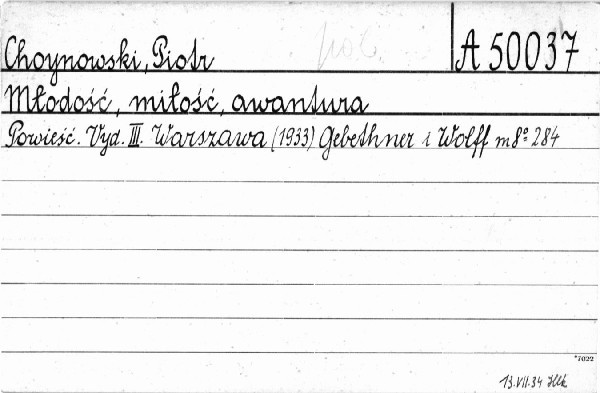 Choynowski, Piotr
pol.
A 50037
Młodość, miłość, awantura
Powieść. Vyd. III. Warszawa (1933) Gebethner i Wolff m 8º 284
*7022
13.VII.34